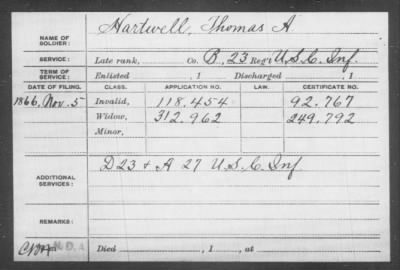 NAME OF SOLDIER: Hartwell, Thomas A
SERVICE: Late rank, Co. B, 23 Reg't U.S.C. Inf.
TERM OF SERVICE: Enlisted , 1 Discharged , 1
DATE OF FILING. CLASS. APPLICATION NO. LAW. CERTIFICATE NO.
1866, Nov. 5 Invalid, 118.454 92.767
Widow, 312.962 249.792
Minor,
ADDITIONAL SERVICES: D 23 + A 27 U.S.C. Inf
REMARKS:
N.D.A
Died , 1 , at